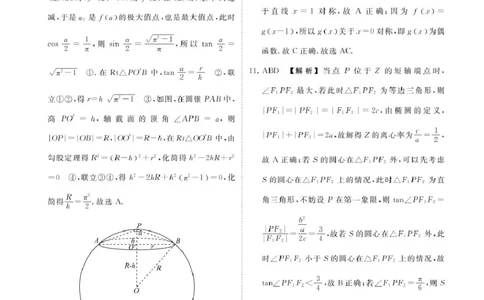 减,于是 a₁ 是 f(a)的极大值点,也是最大值点,此时
cos a/2 = 1/π,则 sin a/2 = √(π²-1)/π,所以 tan a/2 =
√(π²-1) ①. 在 Rt△PO′B 中,tan a/2 = r/h ②,联
立①②,得 r=h √(π²-1) ③,如图,在圆锥 PAB 中,
高 PO′ = h,轴截面的顶角∠APB = a,则
|OP|=|OB|=R,|OO′|=R-h,在Rt△OO′B 中,由
勾股定理得 R²=(R-h)²+r²,化简得 h²-2hR+r²
=0 ④,联立③④,得 h²-2hR+h²(π²-1)=0,化
简得 R/h = π²/2. 故选 A.
P
h
A
O′
r
B
R-h
R
O
于直线 x=1 对称,故 A 正确;因为 f(x)=
g(x-1),所以 g(x)关于x=0对称,即g(x)为偶
函数. 故 C 正确. 故选 AC.
11. ABD 【解析】当点 P 位于 Z 的短轴端点时,
∠F₁PF₂ 最大,若此时△F₁PF₂ 为等边三角形,则
|PF₁|=|PF₂|=|F₁F₂|=2c,由椭圆的定义,
|PF₁|+|PF₂|=2a,故解得 Z 的离心率为 c/a = 1/2,
故 A 正确;若 S 的圆心在△F₁PF₂ 外,可以先考虑
S 的圆心在△F₁PF₂ 上的情况,此时△F₁PF₂ 为直
角三角形,不妨设 P 在第一象限,则 tan∠PF₁F₂=
|PF₂|/|F₁F₂| = (b²/a)/2c = 3/4,故若 S 的圆心在△F₁PF₂ 外,此
时∠PF₁F₂ 小于 S 的圆心在△F₁PF₂ 上的情况,故
tan∠PF₁F₂<3/4,故 B 正确;若∠PF₁F₂=π/6,则 S